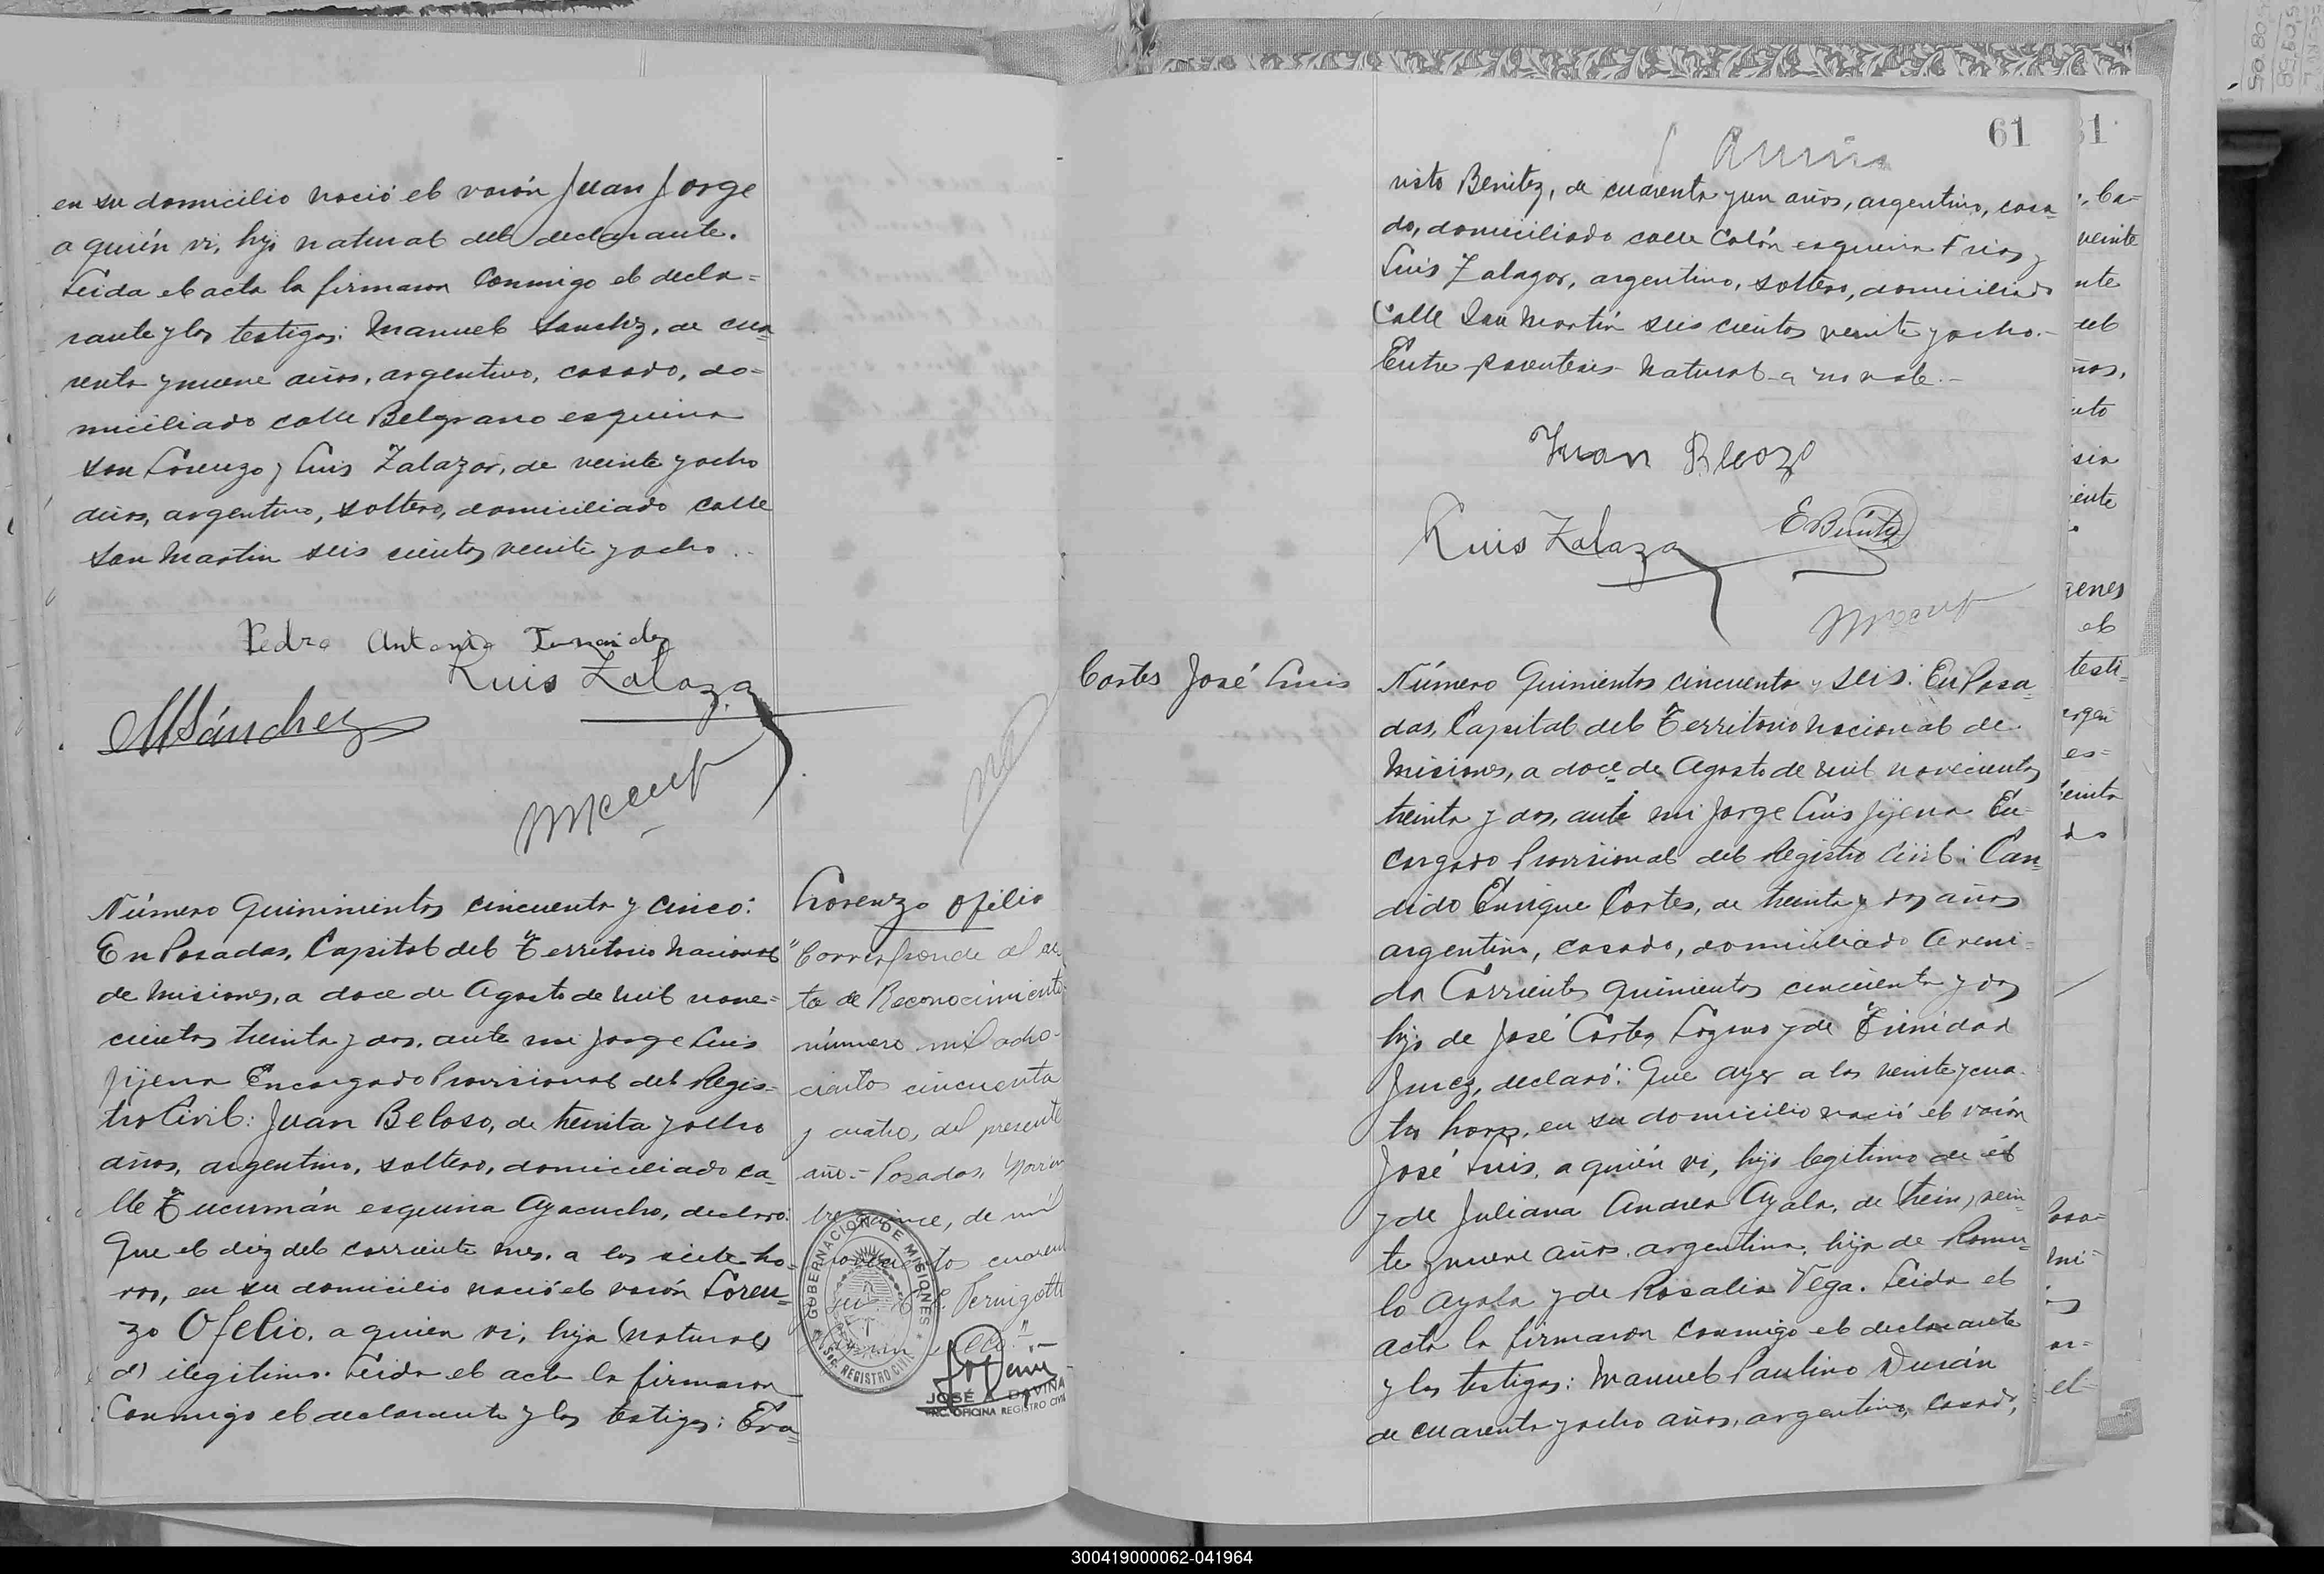 en su domicilio nació el varón Juan Jorge
a quién vi, hijo natural del declarante.
Leida el acta la firmaron conmigo el decla=
rante y los testigos: Manuel Sanchez, de cua
renta y nueve años, argentino, casado, do=
miciliado calle Belgrano esquina
San Lorenzo y Luis Zalazar, de veinte y ocho
años, argentino, soltero, domiciliado calle
San Martin seis cientos veinte y ocho.
Pedro Antonio
Luis Zalaza
MSánchez
Número Quinimientos cincuenta y cinco:
En Posadas, Capital del Territorio Nacional
de Misiones, a doce de Agosto de mil nove=
cientos treinta y dos, ante mi Jorge Luis
Jijena Encargado Provisional del Regis=
tro Civil: Juan Beloso, de treinta y ocho
años, argentino, soltero, domiciliado ca=
lle Tucumán esquina Ayacucho, declaró:
Que el diez del corriente mes, a las siete ho=
ras, en su domicilio nació el varón Loren=
zo Ofelio, a quien vi, hijo (natural)
d) ilegitimo. Leida el acta la firmaron
Conmigo el declarante y los testigos: Eva=
Lorenzo Ofilio
"Corresponde al ac
ta de Reconocimiento
número mil ocho-
cientos cincuenta
y cuatro, del presente
año.- Posadas,
de mil
Pernigotti
GOBERNACION DE MISIONES
REGISTRO CIVIL
JOSÉ A DAVIÑA
ENC. OFICINA REGISTRO CIVIL
61
risto Benitez, de cuarenta y un años, argentino, casa=
do, domiciliado calle Colón esquina Frias y
Luis Zalazar, argentino, soltero, domiciliado
Calle San Martin seis cientos veinte y ocho.-
Entre parentesis natural a no vale.-
Juan Blozo
Luis Zalaza
E Benitez
Cortes José Luis
Número Quinientos cincuenta y seis: En Posa=
das, Capital del Territorio Nacional de
Misiones, a doce de Agosto de mil novecientos
treinta y dos, ante mi Jorge Luis Jijena En=
cargado Provisional del Registro Civil: Can=
dido Enrique Cortes, de treinta y dos años
argentino, casado, domiciliado Aveni=
da Corrientes quinientos cincuenta y dos
hijo de José Cortes Lozano y de Trinidad
Juez, declaró: Que ayer a las veinte y cua=
tro horas, en su domicilio nació el varón
José Luis, a quién vi, hijo legitimo de él
y de Juliana Andrea Ayala, de (trein) vein=
te y nueve años, argentina, hija de Romu=
lo Ayala y de Rosalia Vega. Leida el
acta la firmaron conmigo el declarante
y los testigos: Manuel Paulino Durán
de cuarenta y ocho años, argentino, casado,
300419000062-041964